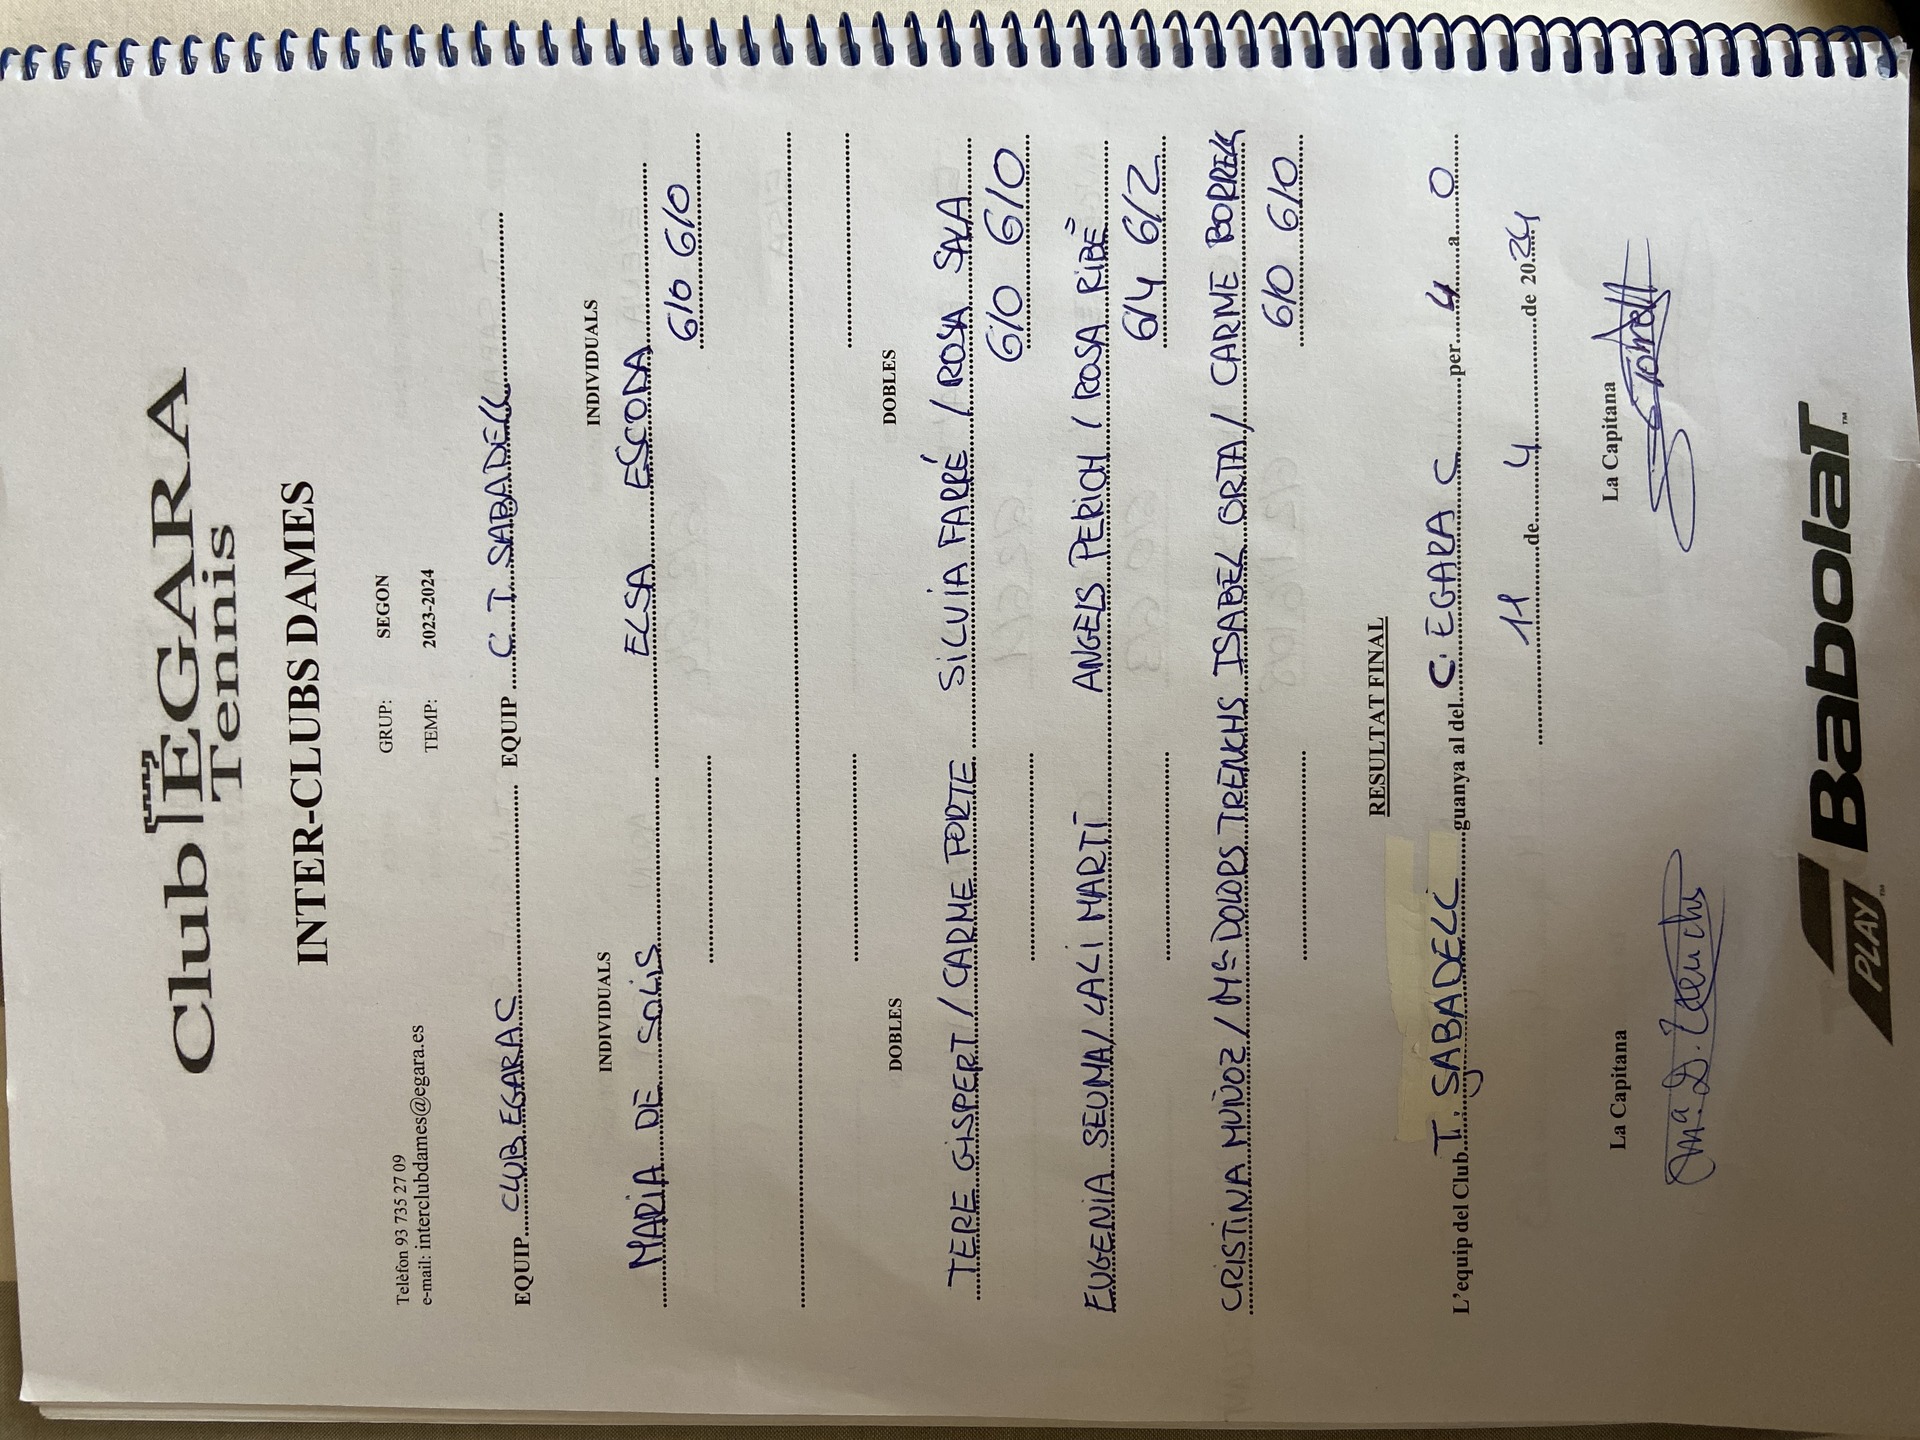 Club EGARA
Tennis
INTER-CLUBS DAMES
Telèfon 93 735 27 09
e-mail: interclubdames@egara.es
GRUP: SEGON
TEMP: 2023-2024
EQUIP CLUB EGARA C EQUIP C T. SABADELL
INDIVIDUALS INDIVIDUALS
MARIA DE SOLIS ELSA ESCODA
6/0 6/0
DOBLES DOBLES
TERE GISPERT / CARME PORTE SILVIA FARRÉ / ROSA SALA
6/0 6/0
EUGENIA SEUMA / LALI MARTÍ ANGELS PERICH / ROSA RIBÉ
6/4 6/2
CRISTINA MUÑOZ / Mª DOLORS TRENCHS ISABEL ORTA / CARME BORRELL
6/0 6/0
RESULTAT FINAL
L'equip del Club T. SABADELL guanya al del C. EGARA C per 4 a 0
11 de 4 de 2024
La Capitana La Capitana
Mª D. Trenchs
PLAY™ Babolat™